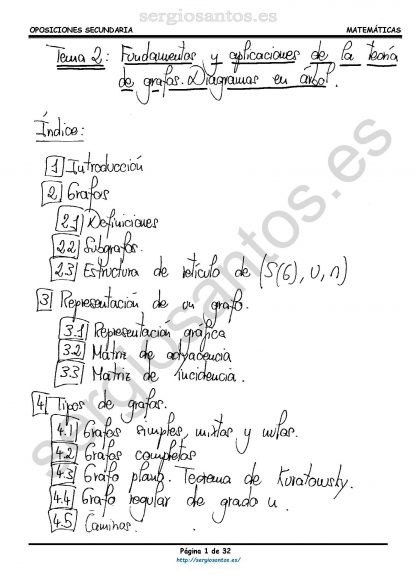 sergiosantos.es
OPOSICIONES SECUNDARIA MATEMÁTICAS
Tema 2: Fundamentos y aplicaciones de la teoría
de grafos. Diagramas en árbol.
Índice:
1 Introducción
2 Grafos
2.1 Definiciones
2.2 Subgrafos.
2.3 Estructura de retículo de (S(G), U, ∩)
3 Representación de un grafo.
3.1 Representación gráfica
3.2 Matriz de adyacencia
3.3 Matriz de incidencia.
4 Tipos de grafos.
4.1 Grafos simples, mixtos y nulos.
4.2 Grafos completos
4.3 Grafo plano. Teorema de Kuratowsky.
4.4 Grafo regular de grado n.
4.5 Caminos.
sergiosantos.es
Página 1 de 32
http://sergiosantos.es/